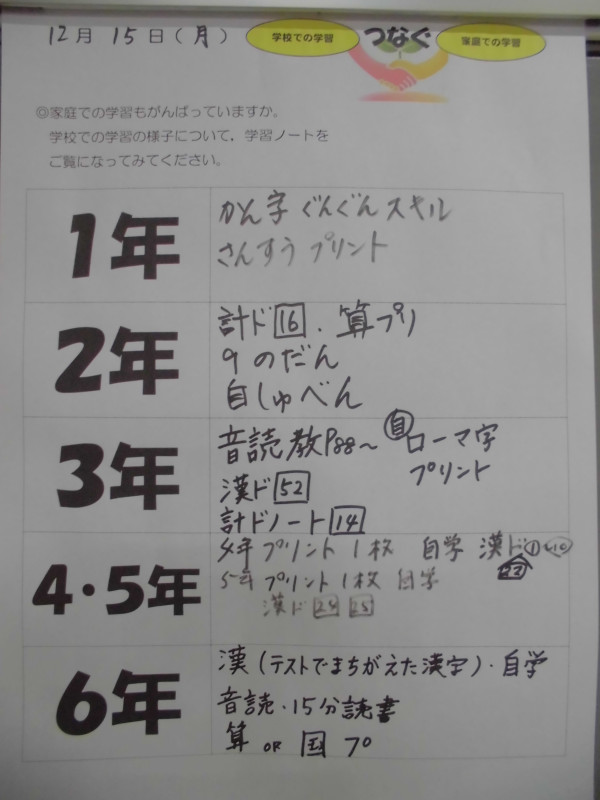 12月 15日(月)
学校での学習 つなぐ 家庭での学習
◎家庭での学習もがんばっていますか。
学校での学習の様子について,学習ノートを
ご覧になってみてください。
1年
かん字 ぐんぐんスキル
さんすう プリント
2年
計ド 16 . 算プリ
9 のだん
自しゅべん
3年
音読教P88~ 自 ローマ字
プリント
漢ド 52
計ドノート 14
4・5年
4年 プリント 1枚 自学 漢ド
22
5年 プリント 1枚 自学
漢ド 24 25
6年
漢 (テストでまちがえた漢字)・自学
音読・15分読書
算 OR 国 プ。